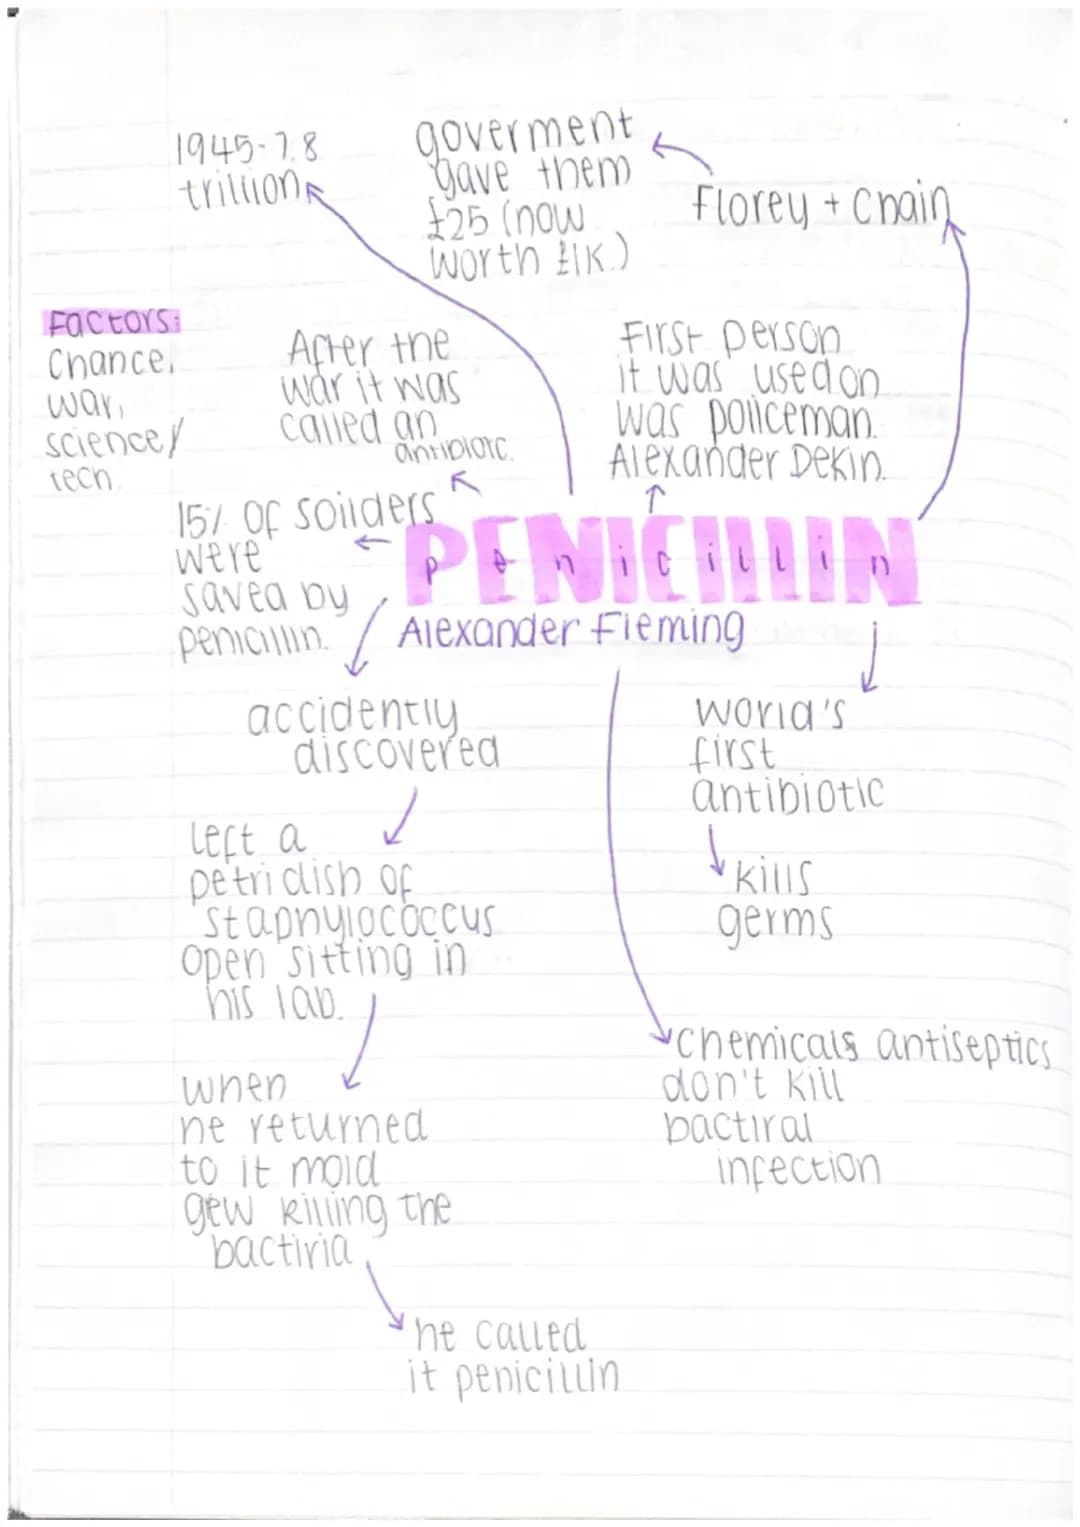 1945-7.8
trillion
goverment
gave them
£25 (now
worth £1K.)
Florey + Chain
Factors:
Chance,
war,
science/
tech.
After the
war it was
called an
antibiotc.
First person
it was used on
was policeman.
Alexander Dekin.
15% of soilders
were
saved by
penicillin.
PENICILLIN
penicillin
Alexander Fleming
accidently
discovered
world's
first
antibiotic
kills
germs
Left a
petri dish of
staphylococcus
open sitting in
his lab.
when
he returned
to it mold
gew killing the
bactiria
chemicals antiseptics
don't kill
bactiral
infection
he called
it penicillin